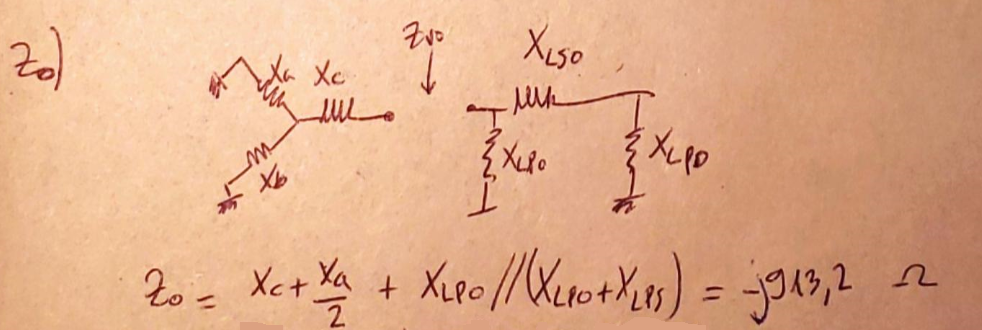 Z₀)
Xa Xc
Xb
Zv0
XLS0
XLP0
XLP0
Z₀ = Xc + Xa/2 + XLP0 // (XLP0 + XLPS) = -j913,2 Ω